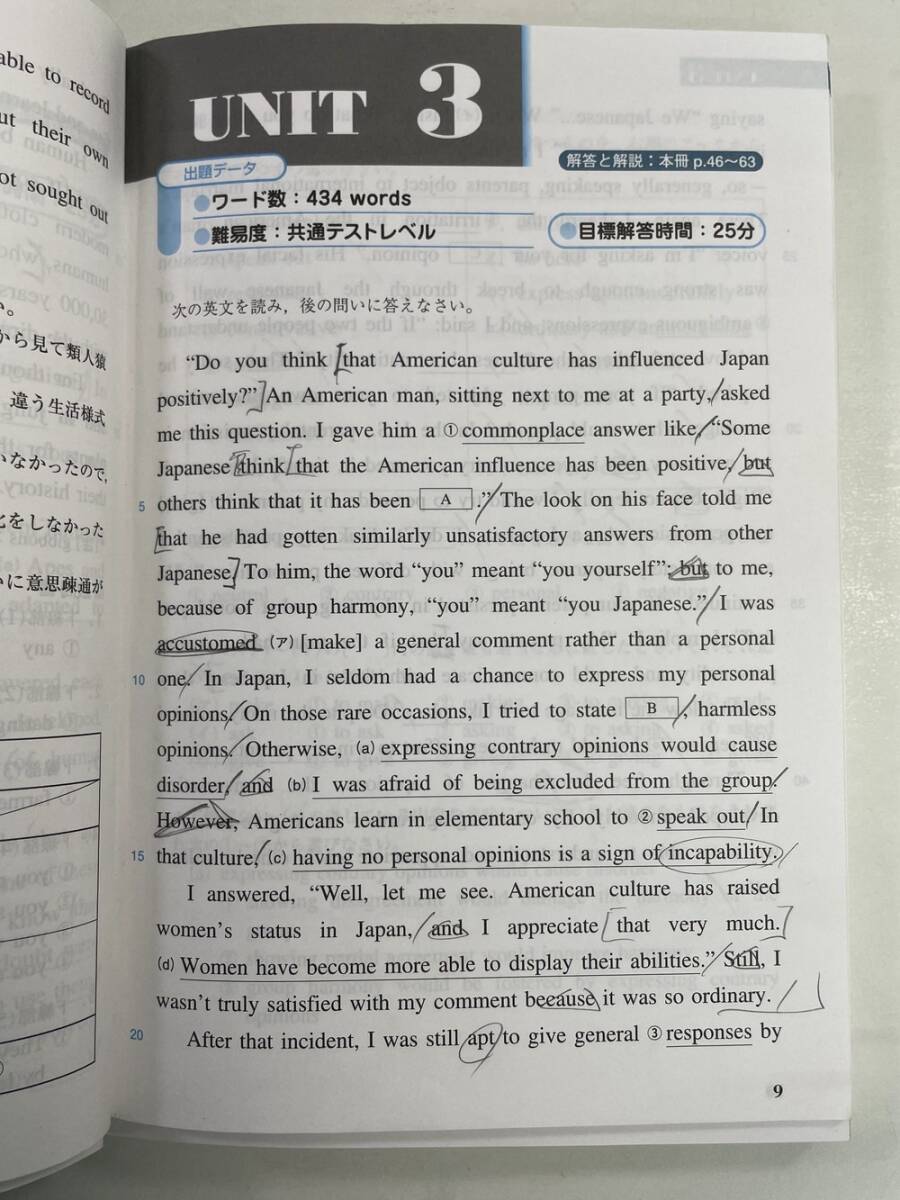 able to record
ut their own
ot sought out
い。
から見て類人猿
違う生活様式
いなかったので,
化をしなかった
いに意思疎通が
UNIT 3
出題データ
解答と解説：本冊 p.46〜63
●ワード数：434 words
●難易度：共通テストレベル
●目標解答時間：25分
次の英文を読み，後の問いに答えなさい。
“Do you think that American culture has influenced Japan
positively?” An American man, sitting next to me at a party, asked
me this question. I gave him a ①commonplace answer like, “Some
Japanese think that the American influence has been positive, but
5 others think that it has been A .” The look on his face told me
that he had gotten similarly unsatisfactory answers from other
Japanese. To him, the word “you” meant “you yourself”; but to me,
because of group harmony, “you” meant “you Japanese.” I was
accustomed (ア)[make] a general comment rather than a personal
10 one. In Japan, I seldom had a chance to express my personal
opinions. On those rare occasions, I tried to state B , harmless
opinions. Otherwise, (a)expressing contrary opinions would cause
disorder, and (b)I was afraid of being excluded from the group.
However, Americans learn in elementary school to ②speak out. In
15 that culture, (c)having no personal opinions is a sign of incapability.
I answered, “Well, let me see. American culture has raised
women’s status in Japan, and I appreciate that very much.
(d)Women have become more able to display their abilities.” Still, I
wasn’t truly satisfied with my comment because it was so ordinary.
20 After that incident, I was still apt to give general ③responses by
9